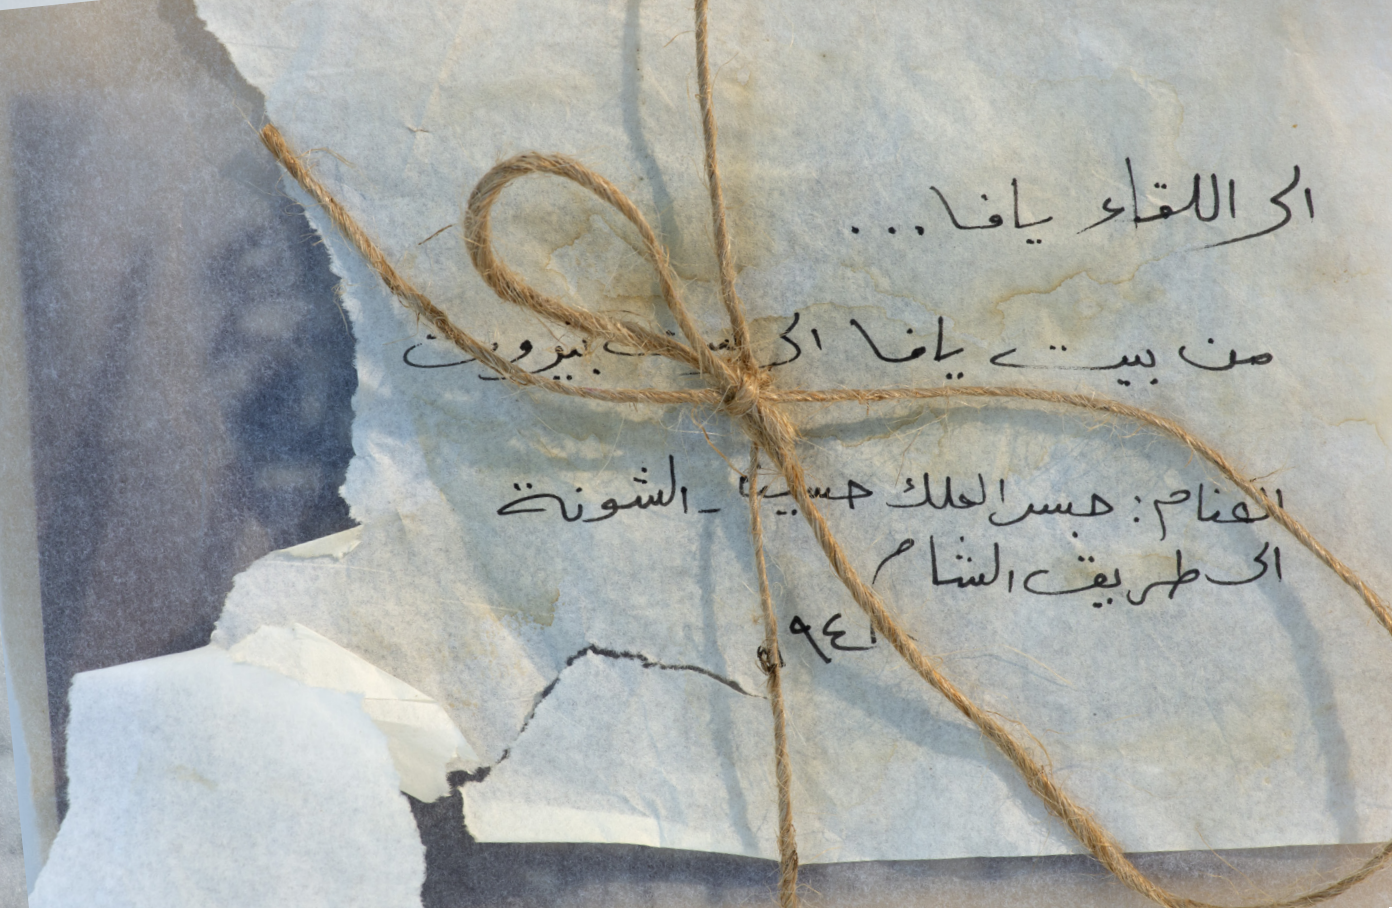 الى اللقاء يافا...
من بيت يافا الى بيت بيروت
العنام: جسر الملك حسين - الشونة
الى طريق الشام
١٩٤٨